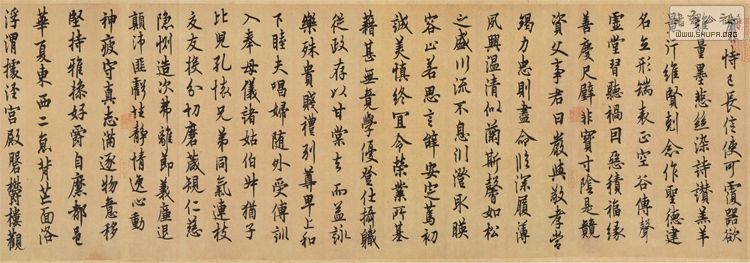 恃己長信使可覆器欲
量墨悲絲染詩讚羔羊
行維賢剋念作聖德建
名立形端表正空谷傳聲
虛堂習聽禍因惡積福緣
善慶尺璧非寶寸陰是競
資父事君曰嚴與敬孝當
竭力忠則盡命臨深履薄
夙興溫凊似蘭斯馨如松
之盛川流不息淵澄取暎
容止若思言辭安定篤初
誠美慎終宜令榮業所基
藉甚無竟學優登仕攝職
從政存以甘棠去而益詠
樂殊貴賤禮別尊卑上和
下睦夫唱婦隨外受傅訓
入奉母儀諸姑伯叔猶子
比兒孔懷兄弟同氣連枝
交友投分切磨箴規仁慈
隱惻造次弗離節義廉退
顛沛匪虧性靜情逸心動
神疲守真志滿逐物意移
堅持雅操好爵自縻都邑
華夏東西二京背芒面洛
浮渭據涇宮殿盤鬱樓觀
WWW.SHUFA.ORG